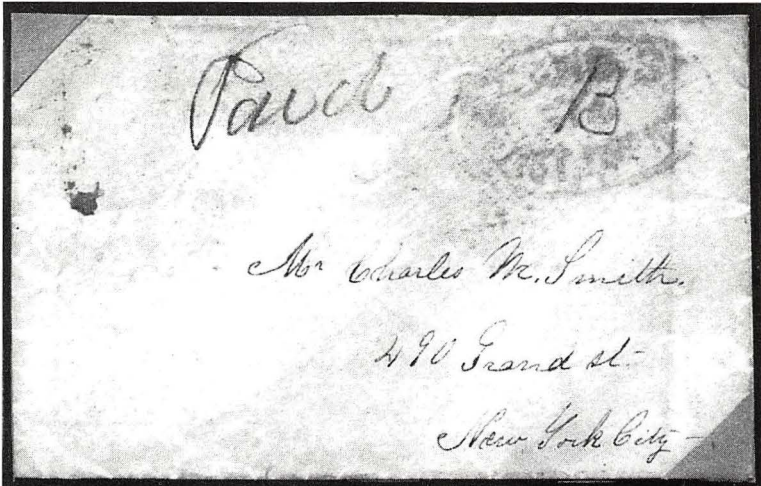 Paid B
Mr Charles M. Smith.
490 Grand st-
New York City-